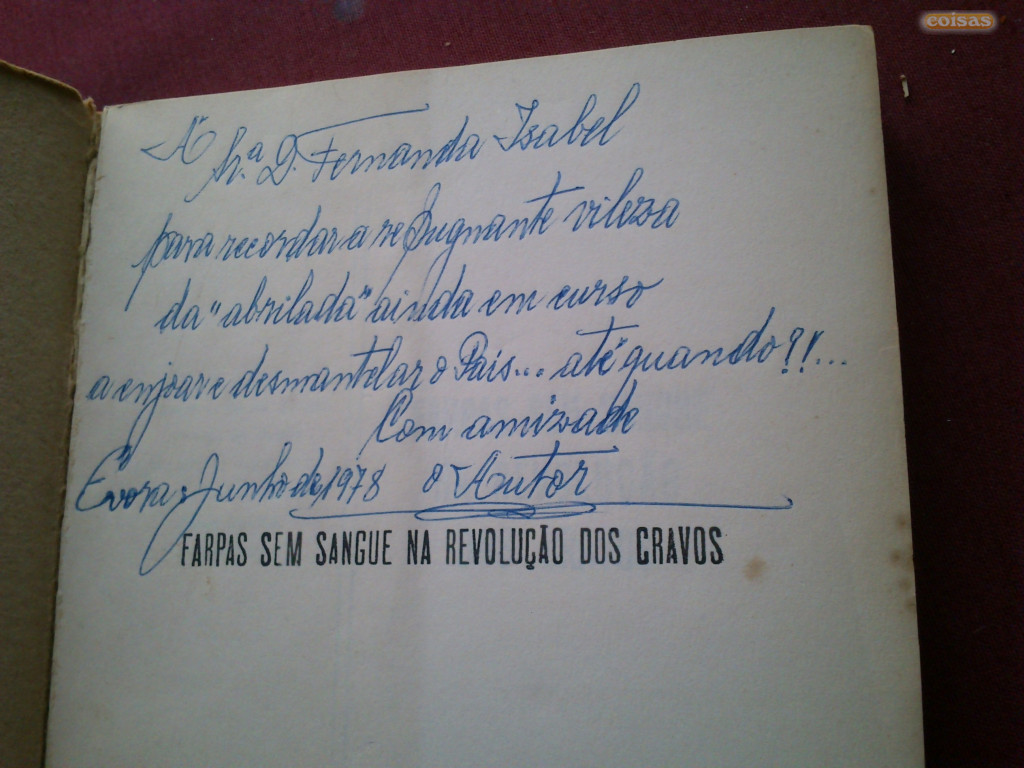 coisas
À
Sr.ª D. Fernanda Isabel
para recordar a repugnante vileza
da "abrilada" ainda em curso
a enjoar e desmantelar o País... até quando?!...
Com amizade
Évora, Junho de 1978 o Autor
FARPAS SEM SANGUE NA REVOLUÇÃO DOS CRAVOS